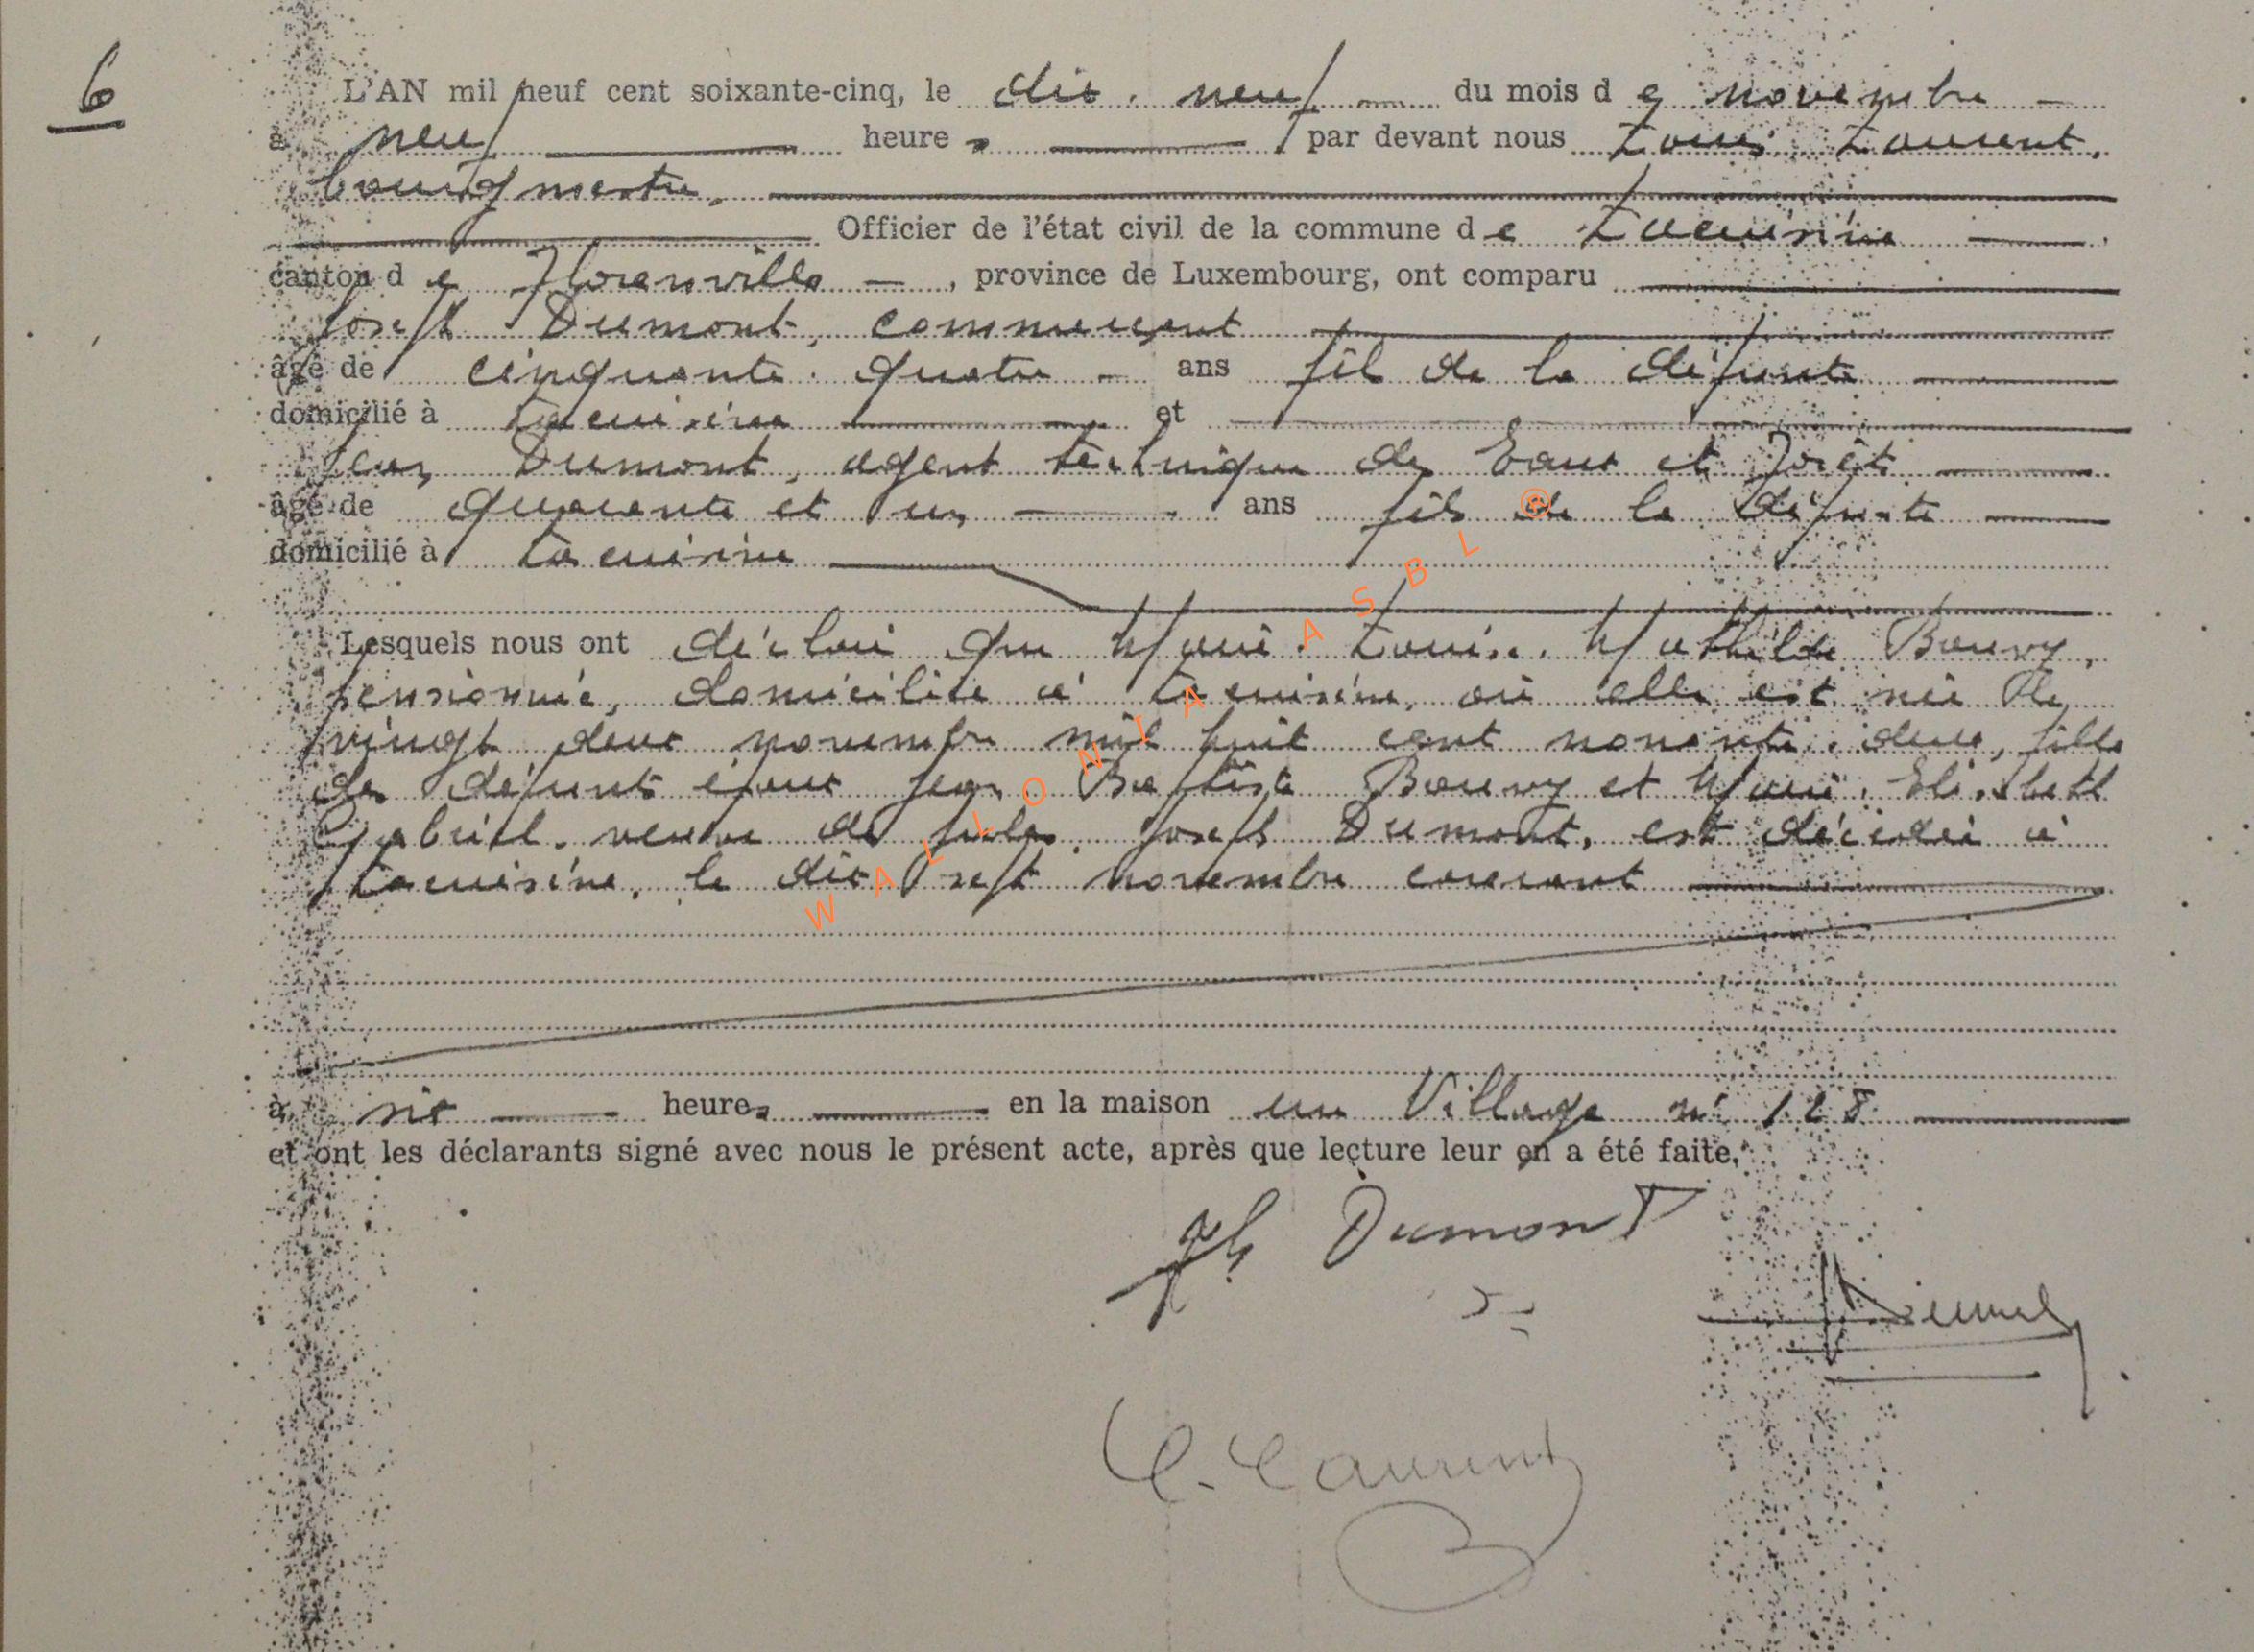 6
L'AN mil neuf cent soixante-cinq, le dix-neuf du mois de novembre
à neuf heures par devant nous Louis Laurent,
bourgmestre,
Officier de l'état civil de la commune de Lacuisine
canton de Florenville, province de Luxembourg, ont comparu
Joseph Dumont, commerçant
âgé de cinquante-quatre ans fils de la défunte
domicilié à Lacuisine et
Jean Dumont, agent technique des Eaux et Forêts
âgé de quarante et un ans fils de la défunte
domicilié à Lacuisine
Lesquels nous ont déclaré que Marie-Louise-Mathilde Bouvy,
pensionnée, domiciliée à Lacuisine, où elle est née le
vingt deux novembre mil huit cent nonante-deux, fille
des défunts époux Jean-Baptiste Bouvy et Marie-Elisabeth
Gabriel, veuve de Jules-Joseph Dumont, est décédée à
Lacuisine, le dix-sept novembre courant
à six heures en la maison au Village n° 128
et ont les déclarants signé avec nous le présent acte, après que lecture leur en a été faite.
Jh Dumont
L. Laurent
WALLONIA ASBL ®